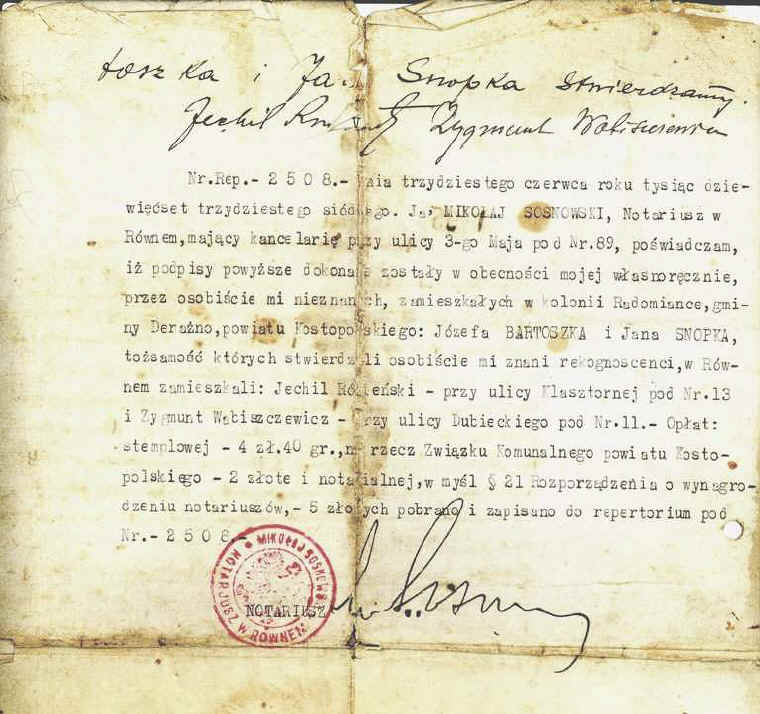 toszka i Jana Snopka stwierdzamy.
Jechil Zygmunt
Nr.Rep.- 2 5 0 8.- Dnia trzydziestego czerwca roku tysiąc dzie-
więćset trzydziestego siódmego. Ja, MIKOŁAJ SOSNOWSKI, Notariusz w
Równem,mający kancelarię przy ulicy 3-go Maja pod Nr.89, poświadczam,
iż podpisy powyższe dokonane zostały w obecności mojej własnoręcznie,
przez osobiście mi nieznanych, zamieszkałych w kolonii Radomiance,gmi-
ny Deraźno,powiatu Kostopolskiego: Józefa BARTOSZKA i Jana SNOPKA,
tożsamość których stwierdzili osobiście mi znani rekognoscenci,w Rów-
nem zamieszkali: Jechil - przy ulicy Klasztornej pod Nr.13
i Zygmunt Wabiszczewicz - przy ulicy Dubieckiego pod Nr.11.- Opłat:
stemplowej - 4 zł.40 gr.,na rzecz Związku Komunalnego powiatu Kosto-
polskiego - 2 złote i notarialnej,w myśl § 21 Rozporządzenia o wynagro-
dzeniu notariuszów,- 5 złotych pobrano i zapisano do repertorium pod
Nr.- 2 5 0 8.-
MIKOŁAJ SOSNOWSKI
NOTARJUSZ W RÓWNEM
NOTARIUSZ